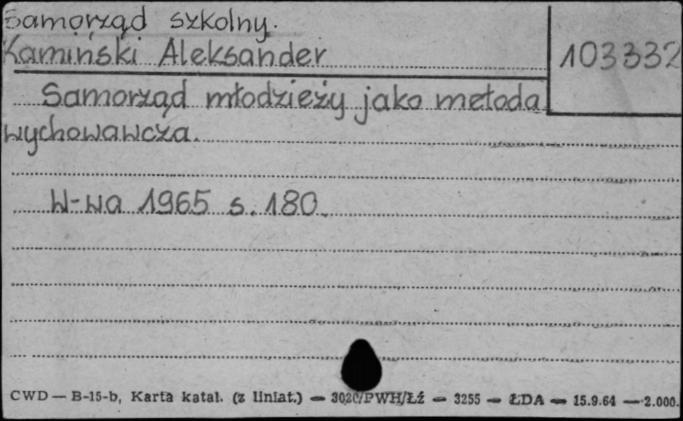 Samorząd szkolny.
Kamiński Aleksander
103332
Samorząd młodzieży jako metoda
wychowawcza.
W-wa 1965 s. 180.
CWD — B-15-b, Karta katal. (z liniat.) — 3020/PWH/Łź — 3255 — ŁDA — 15.9.64 — 2.000.